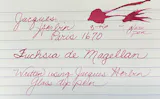 Jacques
Herbin
Paris 1670
Fuchsia de Magellan
Written using Jacques Herbin
glass dip pen